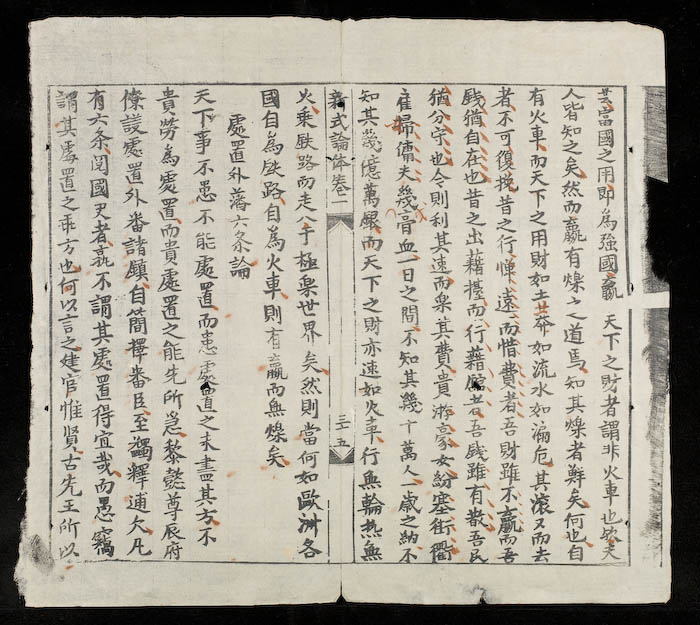 其當國之用即為強國贏 天下之財者謂非火車也欤夫
人皆知之矣然而贏有燥之道焉知其燥者鮮矣何也自
有火車而天下之用財如土莽如流水如漏卮其滾又而去
者不可復挽昔之行憚遠而惜費者吾財雖不贏而吾
錢猶自在也昔之出藉擔而行藉 者吾錢雖有散吾民
猶分守也今則利其速而樂其費貴游豪女紛塞街衢
雇掃傭夫幾膏血一日之間不知其幾千萬人一歲之納不
知其幾億萬銀而天下之財亦速如火車行無輪热無
新式論体卷一
三十五
火乘鉄路而走入于極樂世界矣然則當何如歐洲各
國自為鉄路自為火車則有贏而無燥矣
處置外藩六条論
天下事不愚不能處置而患處置之未盡其方不
貴勞為處置而貴處置之能先所急黎懿尊辰府
僚議處置外番諸鎮自簡擇番臣至蠲釋逋欠凡
有六条閱國史者孰不謂其處置得宜哉而愚竊
謂其處置之乖方也何以言之建官惟賢古先王所以